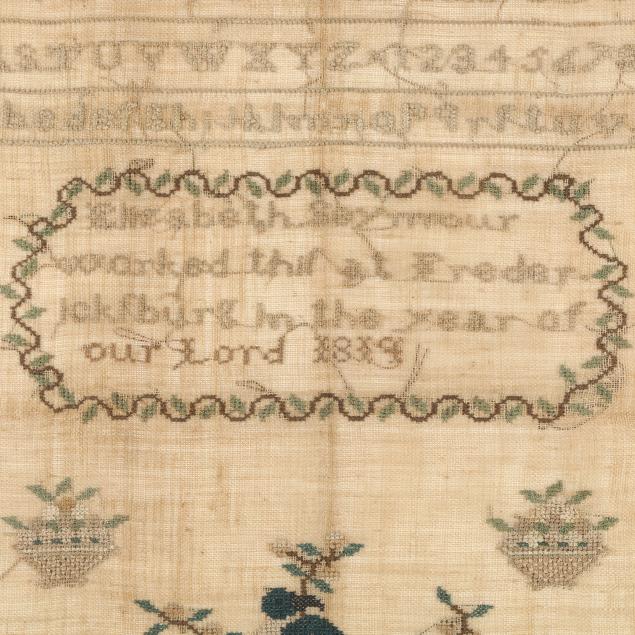 RSTUVWXYZ 12345678
bcdefghijklmnopqrstuvw
Elizabeth Seymour
worked this at Freder
icksburg in the year of
our Lord 1819